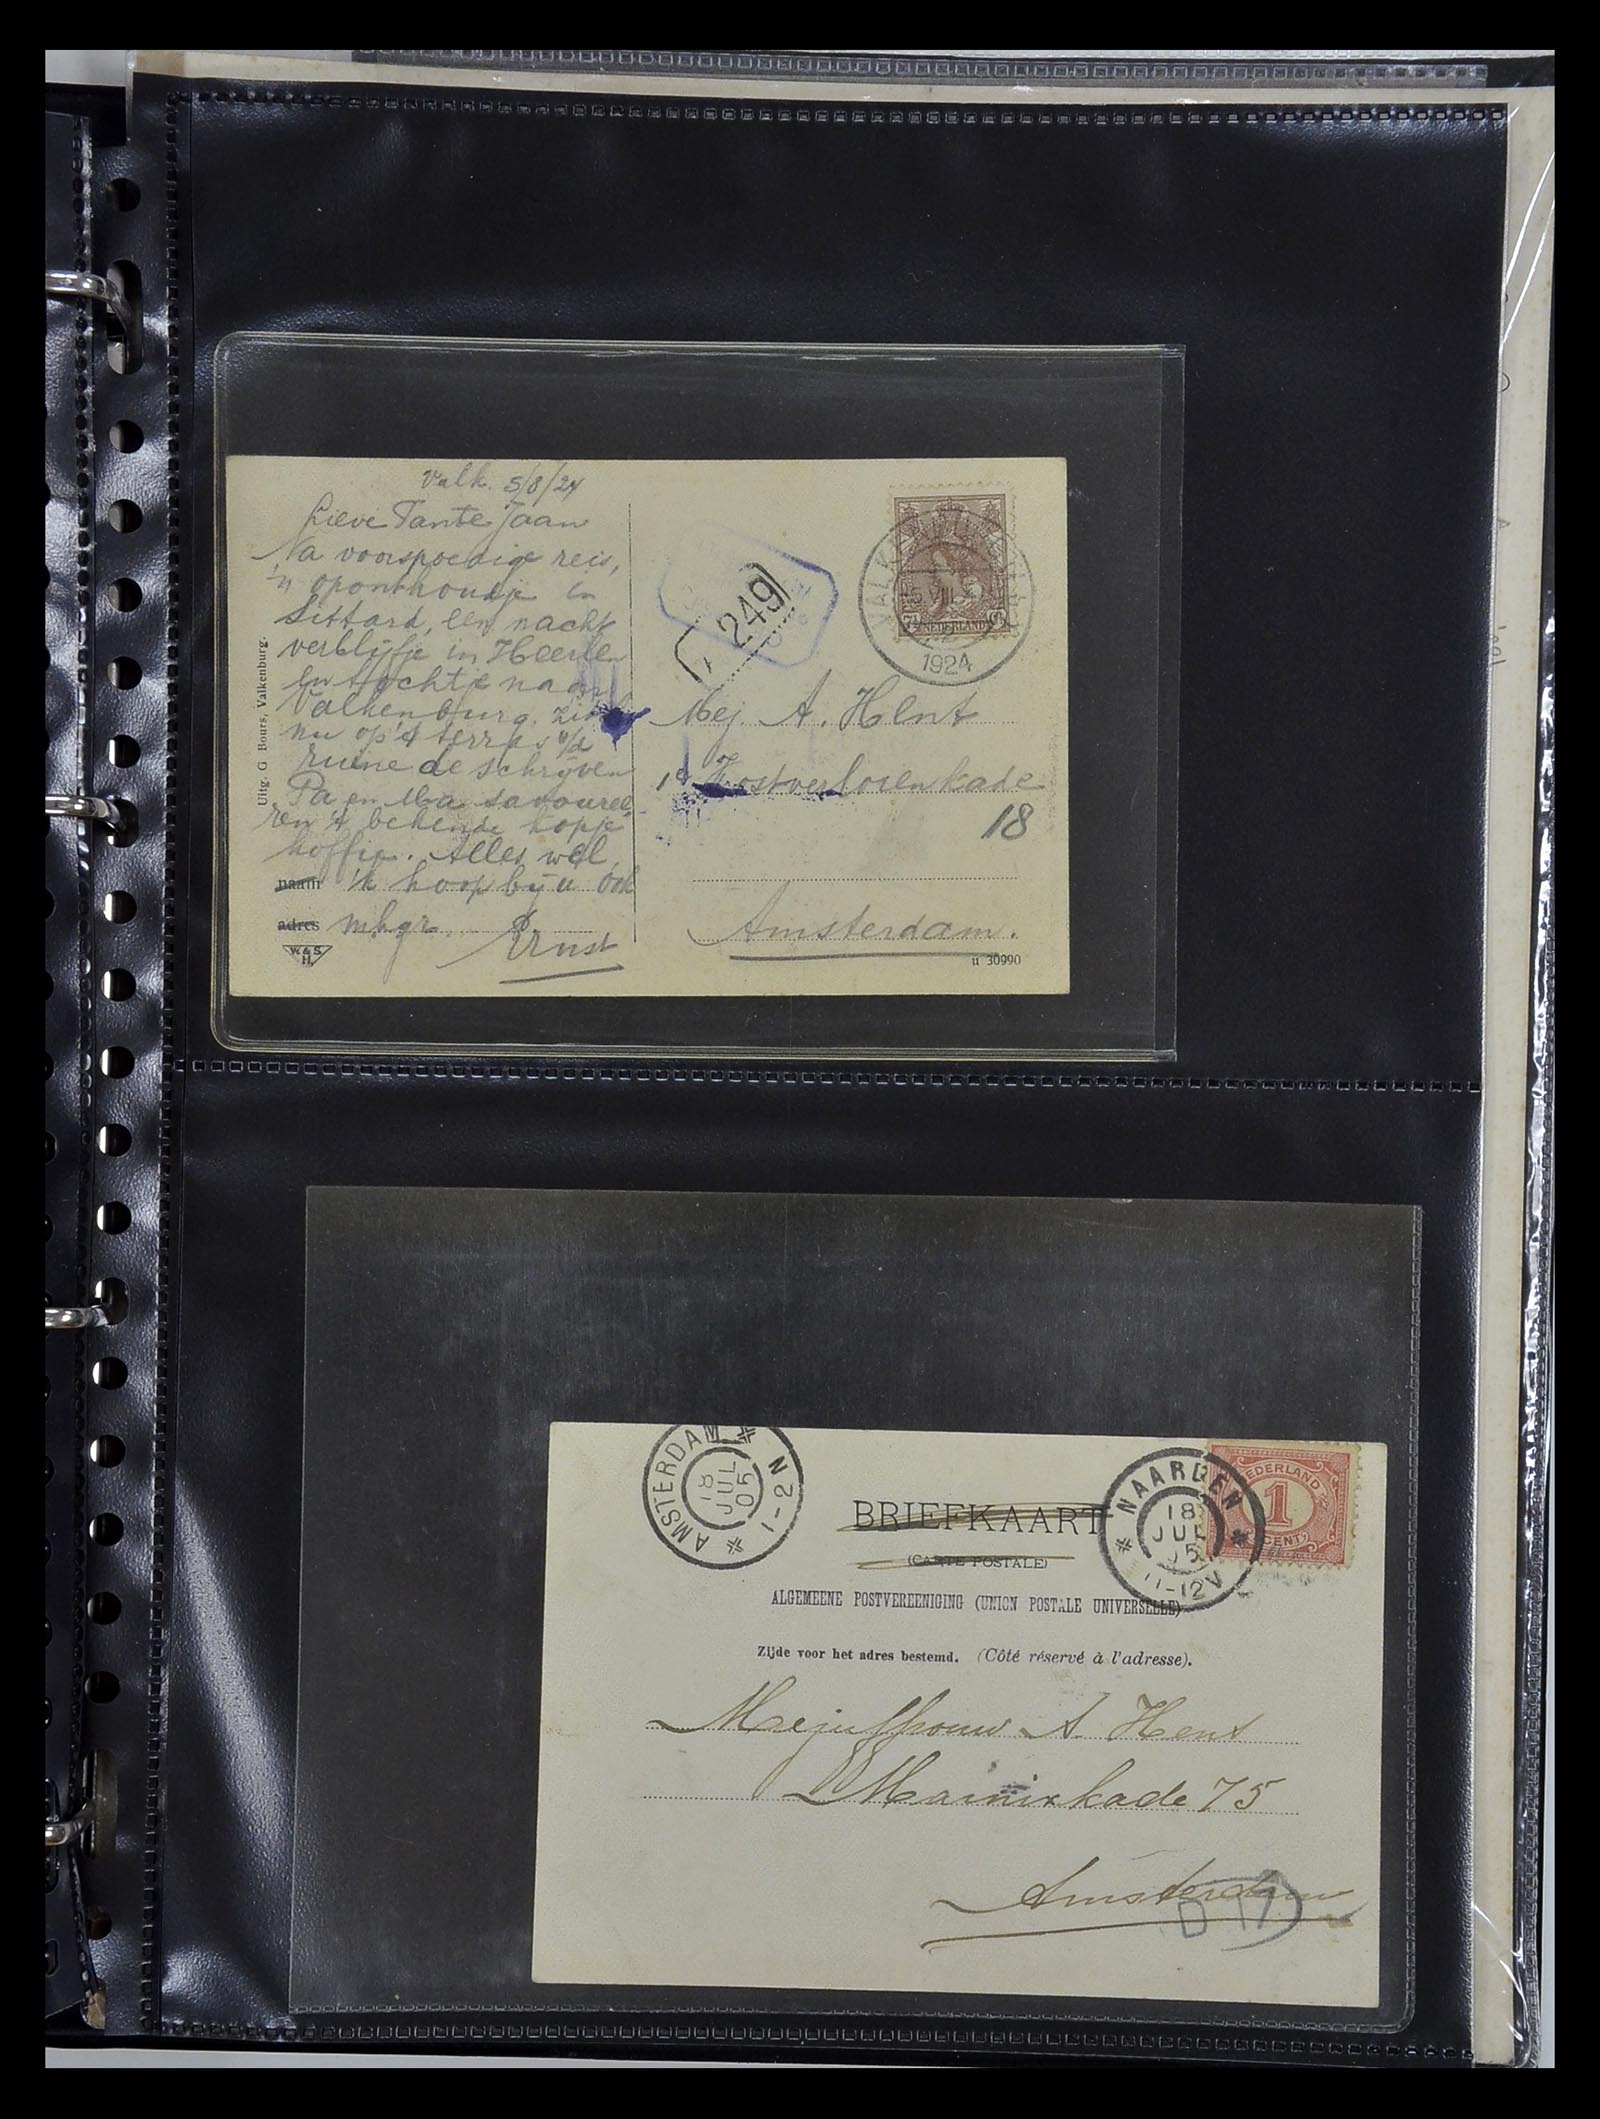 Valk. 5/8/24
Lieve Tante Jaan
Na voorspoedige reis,
'n oponthoudje in
Sittard, een nacht
verblijfje in Heerlen
en tochtje naar
Valkenburg. zitten
nu op 't terras v/d
ruine de schrijven
Pa en Ma savouree
ren 't bekende kopje
koffie. Alles wel,
naam 'k hoop bij u ook
adres m.h.gr.
Ernst
W & S
H.
Uitg. G Bours, Valkenburg.
249
VALK
5 VIII
1924
7½ NEDERLAND Ct
Mej. A. Hent
1e Kostverlorenkade
18
Amsterdam.
u 30990
AMSTERDAM
18
JUL
05
1-2 N
NAARDEN
18
JUL
05
11-12V
NEDERLAND
1
CENT
BRIEFKAART
(CARTE POSTALE)
ALGEMEENE POSTVEREENIGING (UNION POSTALE UNIVERSELLE)
Zijde voor het adres bestemd. (Côté réservé à l'adresse).
Mejuffrouw A. Hent
Marnixkade 75
Amsterdam
D 17